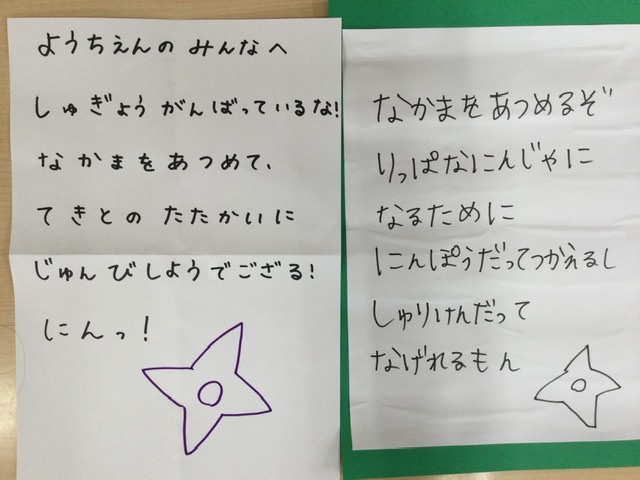 ようちえんの みんなへ
しゅぎょう がんばっているな!
なかまをあつめて、
てきとの たたかいに
じゅんびしようでござる!
にんっ!
なかまを あつめるぞ
りっぱなにんじゃに
なるために
にんぽうだってつかえるし
しゅりけんだって
なげれるもん